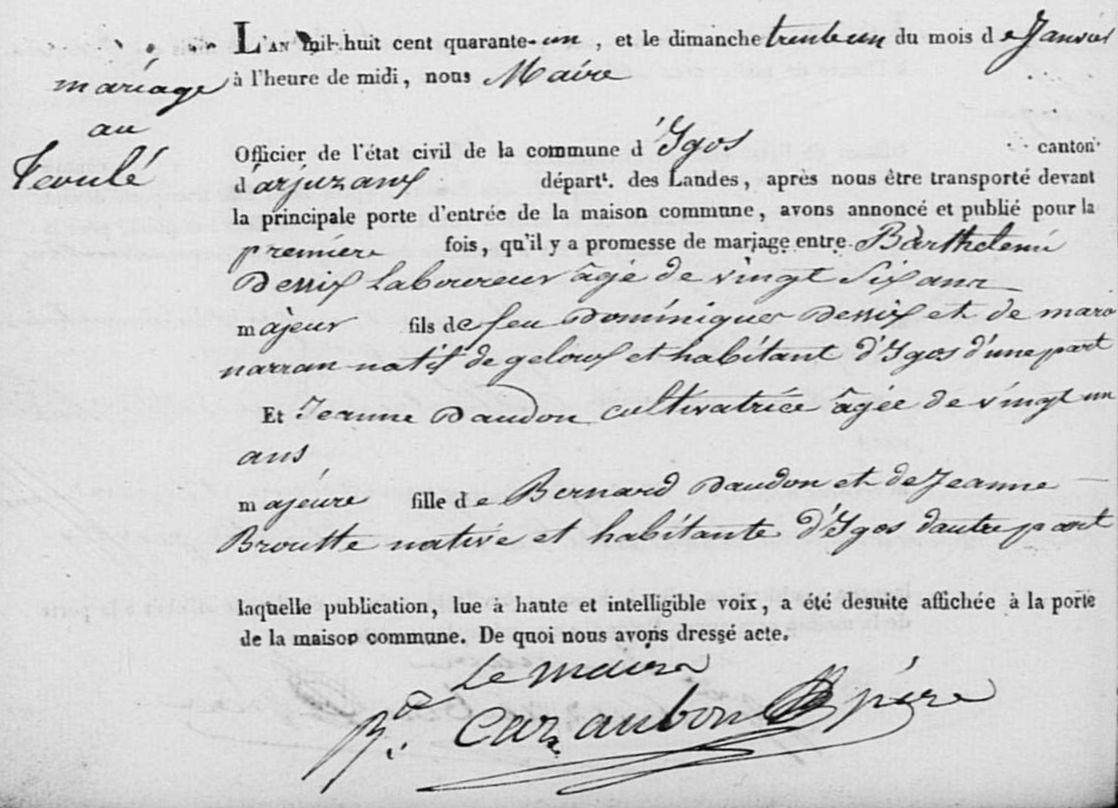 mariage
au
Teoulé
L'AN mil huit cent quarante-un, et le dimanche trente un du mois de Janvier
à l'heure de midi, nous Maire
Officier de l'état civil de la commune d'Ygos canton
d'arjuzanx départt. des Landes, après nous être transporté devant
la principale porte d'entrée de la maison commune, avons annoncé et publié pour la
première fois, qu'il y a promesse de mariage entre Barthelemi
Dessix Laboureur âgé de vingt Six ans
majeur fils de feu Dominique Dessix et de marie
narran natif de geloux et habitant d'Ygos d'une part
Et Jeanne Daudon cultivatrice âgée de vingt un
ans
majeure fille de Bernard Daudon et de Jeanne
Broutte native et habitante d'Ygos d'autre part
laquelle publication, lue à haute et intelligible voix, a été desuite affichée à la porte
de la maison commune. De quoi nous avons dressé acte.
Le maire
Bd. Cazaubon père